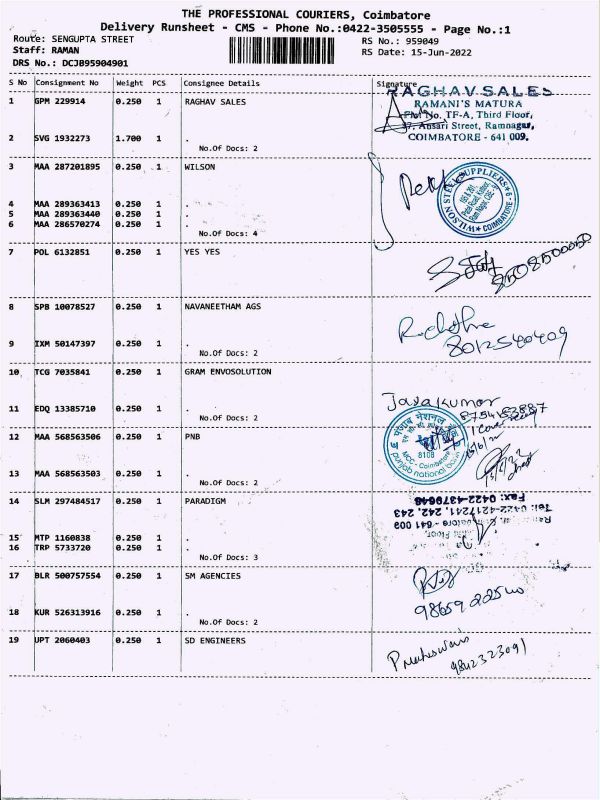 THE PROFESSIONAL COURIERS, Coimbatore
Delivery Runsheet - CMS - Phone No.:0422-3505555 - Page No.:1
Route: SENGUPTA STREET
RS No.: 959049
Staff: RAMAN
RS Date: 15-Jun-2022
DRS No.: DCJB95904901
S No Consignment No Weight PCS Consignee Details Signature
1 GPM 229914 0.250 1 RAGHAV SALES
RAGHAV SALES
RAMANI'S MATURA
No. TF-A, Third Floor,
37, Ansari Street, Ramnagar,
COIMBATORE - 641 009.
2 SVG 1932273 1.700 1 .
No.Of Docs: 2
3 MAA 287201895 0.250 1 WILSON
WILSON STEEL SUPPLIERS
COIMBATORE-9
4 MAA 289363413 0.250 1 .
5 MAA 289363440 0.250 1 .
6 MAA 286570274 0.250 1 .
No.Of Docs: 4
7 POL 6132851 0.250 1 YES YES
9508500050
8 SPB 10078527 0.250 1 NAVANEETHAM AGS
8012540409
9 IXM 50147397 0.250 1 .
No.Of Docs: 2
10 TCG 7035841 0.250 1 GRAM ENVOSOLUTION
Jayakumar
11 EDQ 13385710 0.250 1 .
No.Of Docs: 2
12 MAA 568563506 0.250 1 PNB
पंजाब नैशनल
8108
MCC - Coimbatore
punjab national bank
13 MAA 568563503 0.250 1 .
No.Of Docs: 2
14 SLM 297484517 0.250 1 PARADIGM
Fax: 0422-4379648
Tel: 0422-4217241, 242, 243
641 009
15 MTP 1160838 0.250 1 .
16 TRP 5733720 0.250 1 .
No.Of Docs: 3
17 BLR 500757554 0.250 1 SM AGENCIES
18 KUR 526313916 0.250 1 .
No.Of Docs: 2
19 UPT 2060403 0.250 1 SD ENGINEERS
9842323091